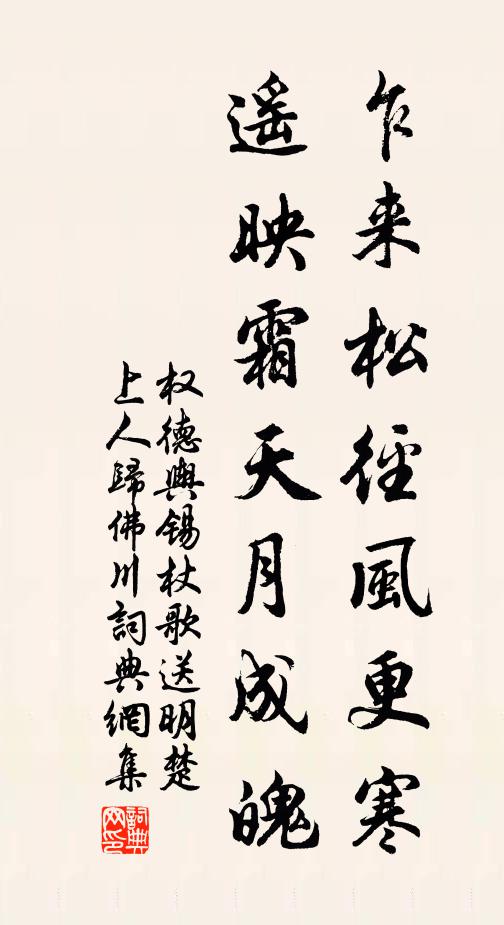 乍来松徑風更寒
遥映霜天月成魄
权德輿锡杖歌送明楚
上人歸佛川詞典網集
詞典
网印